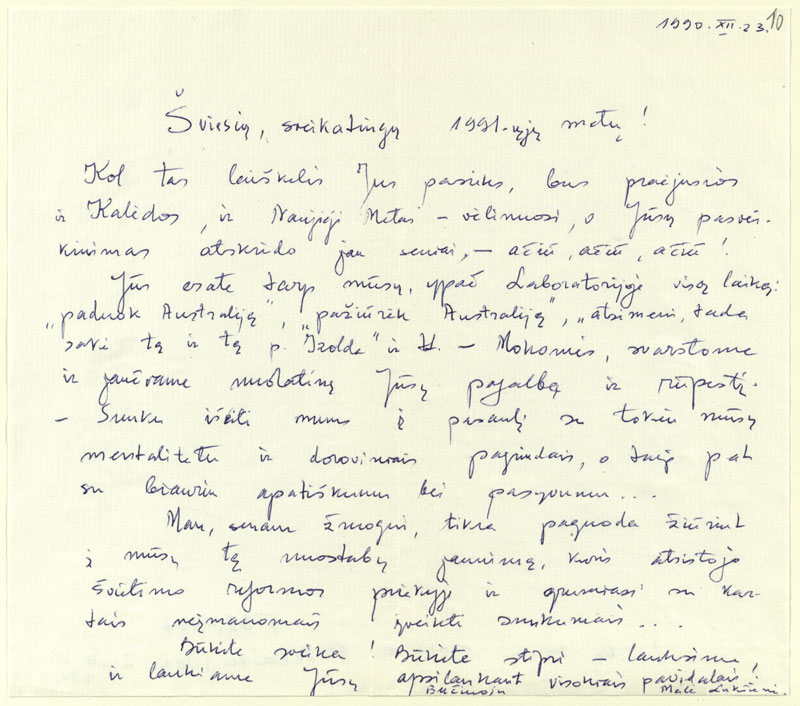 1990.XII.23. 10
Šviesių, sveikatingų 1991-ųjų metų!
Kol tas laiškelis Jus pasieks, bus praėjusios
ir Kalėdos, ir Naujieji Metai – vėlinuosi, o Jūsų pasvei-
kinimas atskrido jau seniai, – ačiū, ačiū, ačiū!
Jūs esate tarp mūsų, ypač Laboratorijoje visą laiką:
„paduok Australiją", „pažiūrėk Australiją", „atsimeni, tada
sakė tą ir tą p. „Izolda" ir tt. – Mokomės, svarstome
ir jaučiame nuolatinę Jūsų pagalbą ir rūpestį.
– Sunku išeiti mums į pasaulį su tokiu mūsų
mentalitetu ir doroviniais pagrindais, o taip pat
su biauriu apatiškumu bei pasyvumu...
Man, senam žmogui, tikra paguoda žiūrint
į mūsų tą nuostabų jaunimą, kuris atsistojo
švietimo reformos priekyje ir grumiasi su kar-
tais neįmanomais įveikti sunkumais...
Būkite sveika! Būkite stipri – lauksime
ir laukiame Jūsų apsilankant visokiais pavidalais!
Bučiuoju Malė Lukšienė.